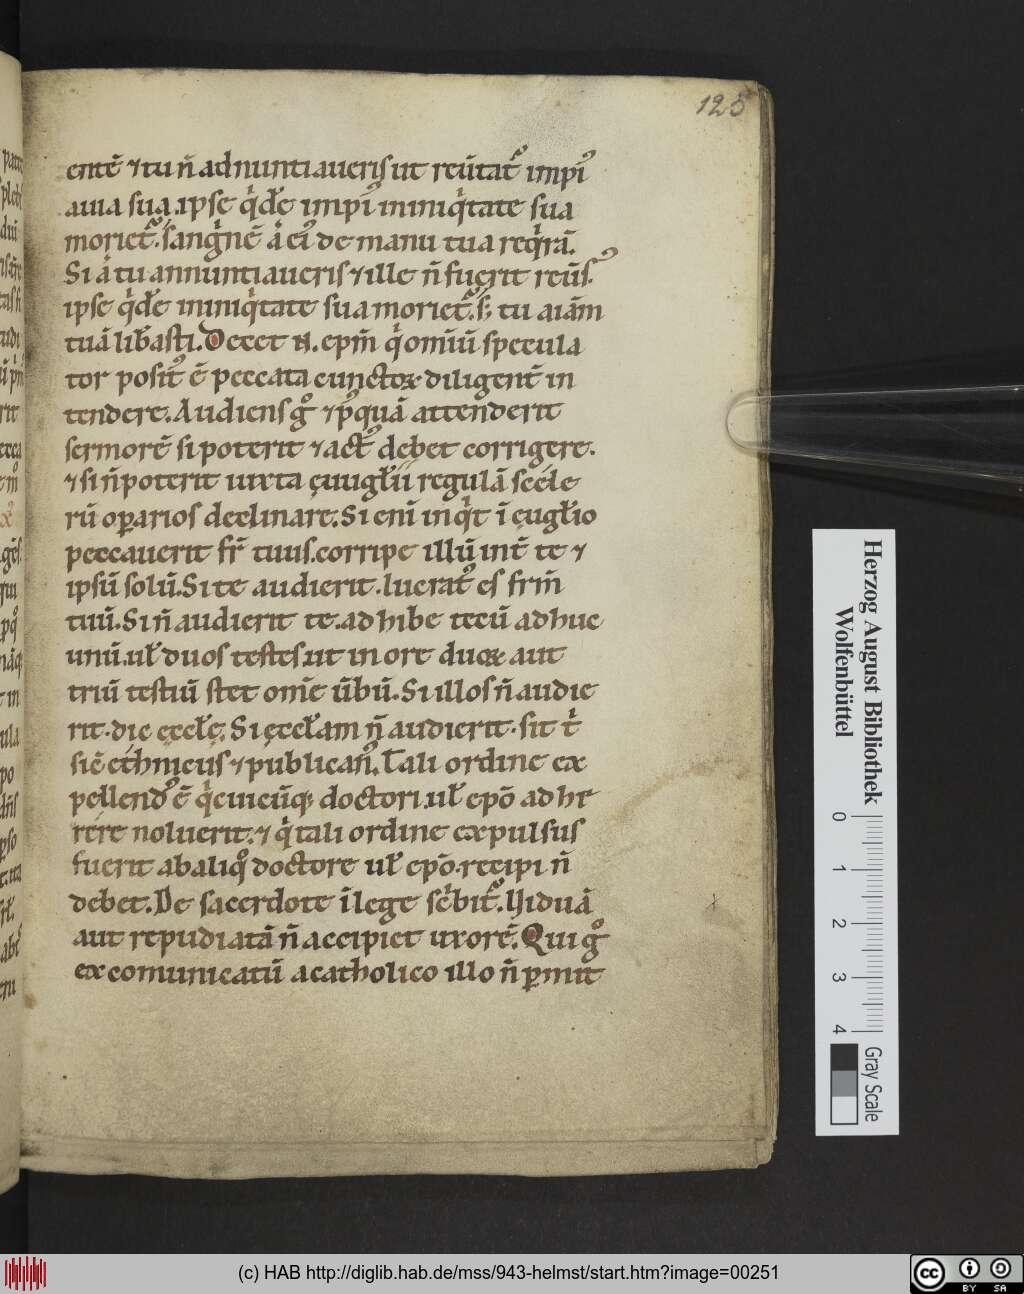 125
entē ⁊ tu n̄ adnuntiaueris ut reūtat᷑ impi᷒
a uia sua. ipse q̍dē impi᷒ in iniq̍tate sua
moriet᷑. sang̍nē ȧ ei᷒ de manu tua req̍rā.
Si ȧ tu annuntiaueris ⁊ ille n̄ fuerit reūs᷒.
ipse q̍dē in iniq̍tate sua moriet᷑. s; tu aiām
tuā libasti. Decet .N. epm̄ q̍ omīū specula
tor posit᷒ ē peccata cunctoꝝ diligent̄ in
tendere. Audiens gͦ ⁊ p᷒quā attenderit
sermonē si poterit ⁊ act᷒ debet corrigere.
⁊ si n̄ poterit iuxta ęuuglii regulā scele
rū oꝑarios declinare. Si enī inq̍t ī ęuglio
peccauerit fr̄ tuus. corripe illū int̄ te ⁊
ipsū solū. Si te audierit. lucrat᷒ es frm̄
tuū. Si n̄ audierit te. adhibe tecū adhuc
unū. ul̄ duos testes. ut in ore duoꝝ aut
triū testiū stet om̄e ūbū. Si illos n̄ audie
rit. dic ęccłę. Si ęccłam n̄ audierit. sit t̍
sic̄ ethnicus ⁊ publican᷒. Tali ordine ex
pellend᷒ ē q̍cuicūq; doctori. ul̄ epō adhe
rere noluerit. ⁊ q̍ tali ordine expulsus
fuerit ab aliqͦ doctore ul̄ epō. recipi n̄
debet. De sacerdote ī lege sc̍bit᷑. Uiduā
aut repudiatā n̄ accipiet uxorē. Qui gͦ
excomunicatū a catholico illo n̄ ꝑmit
Herzog August Bibliothek
Wolfenbüttel
0 1 2 3 4
Gray Scale
(c) HAB http://diglib.hab.de/mss/943-helmst/start.htm?image=00251
cc BY SA